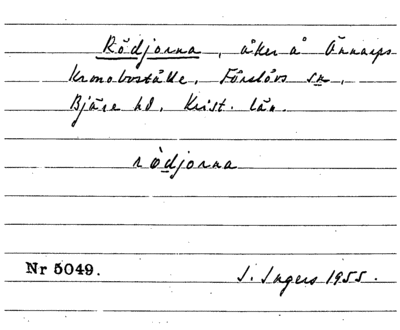 Rödjorna, åker å Ännarps
Kronoboställe, Förslövs sn,
Bjäre hd, Krist. län.
rödjorna
Nr 5049. I. Ingers 1955.